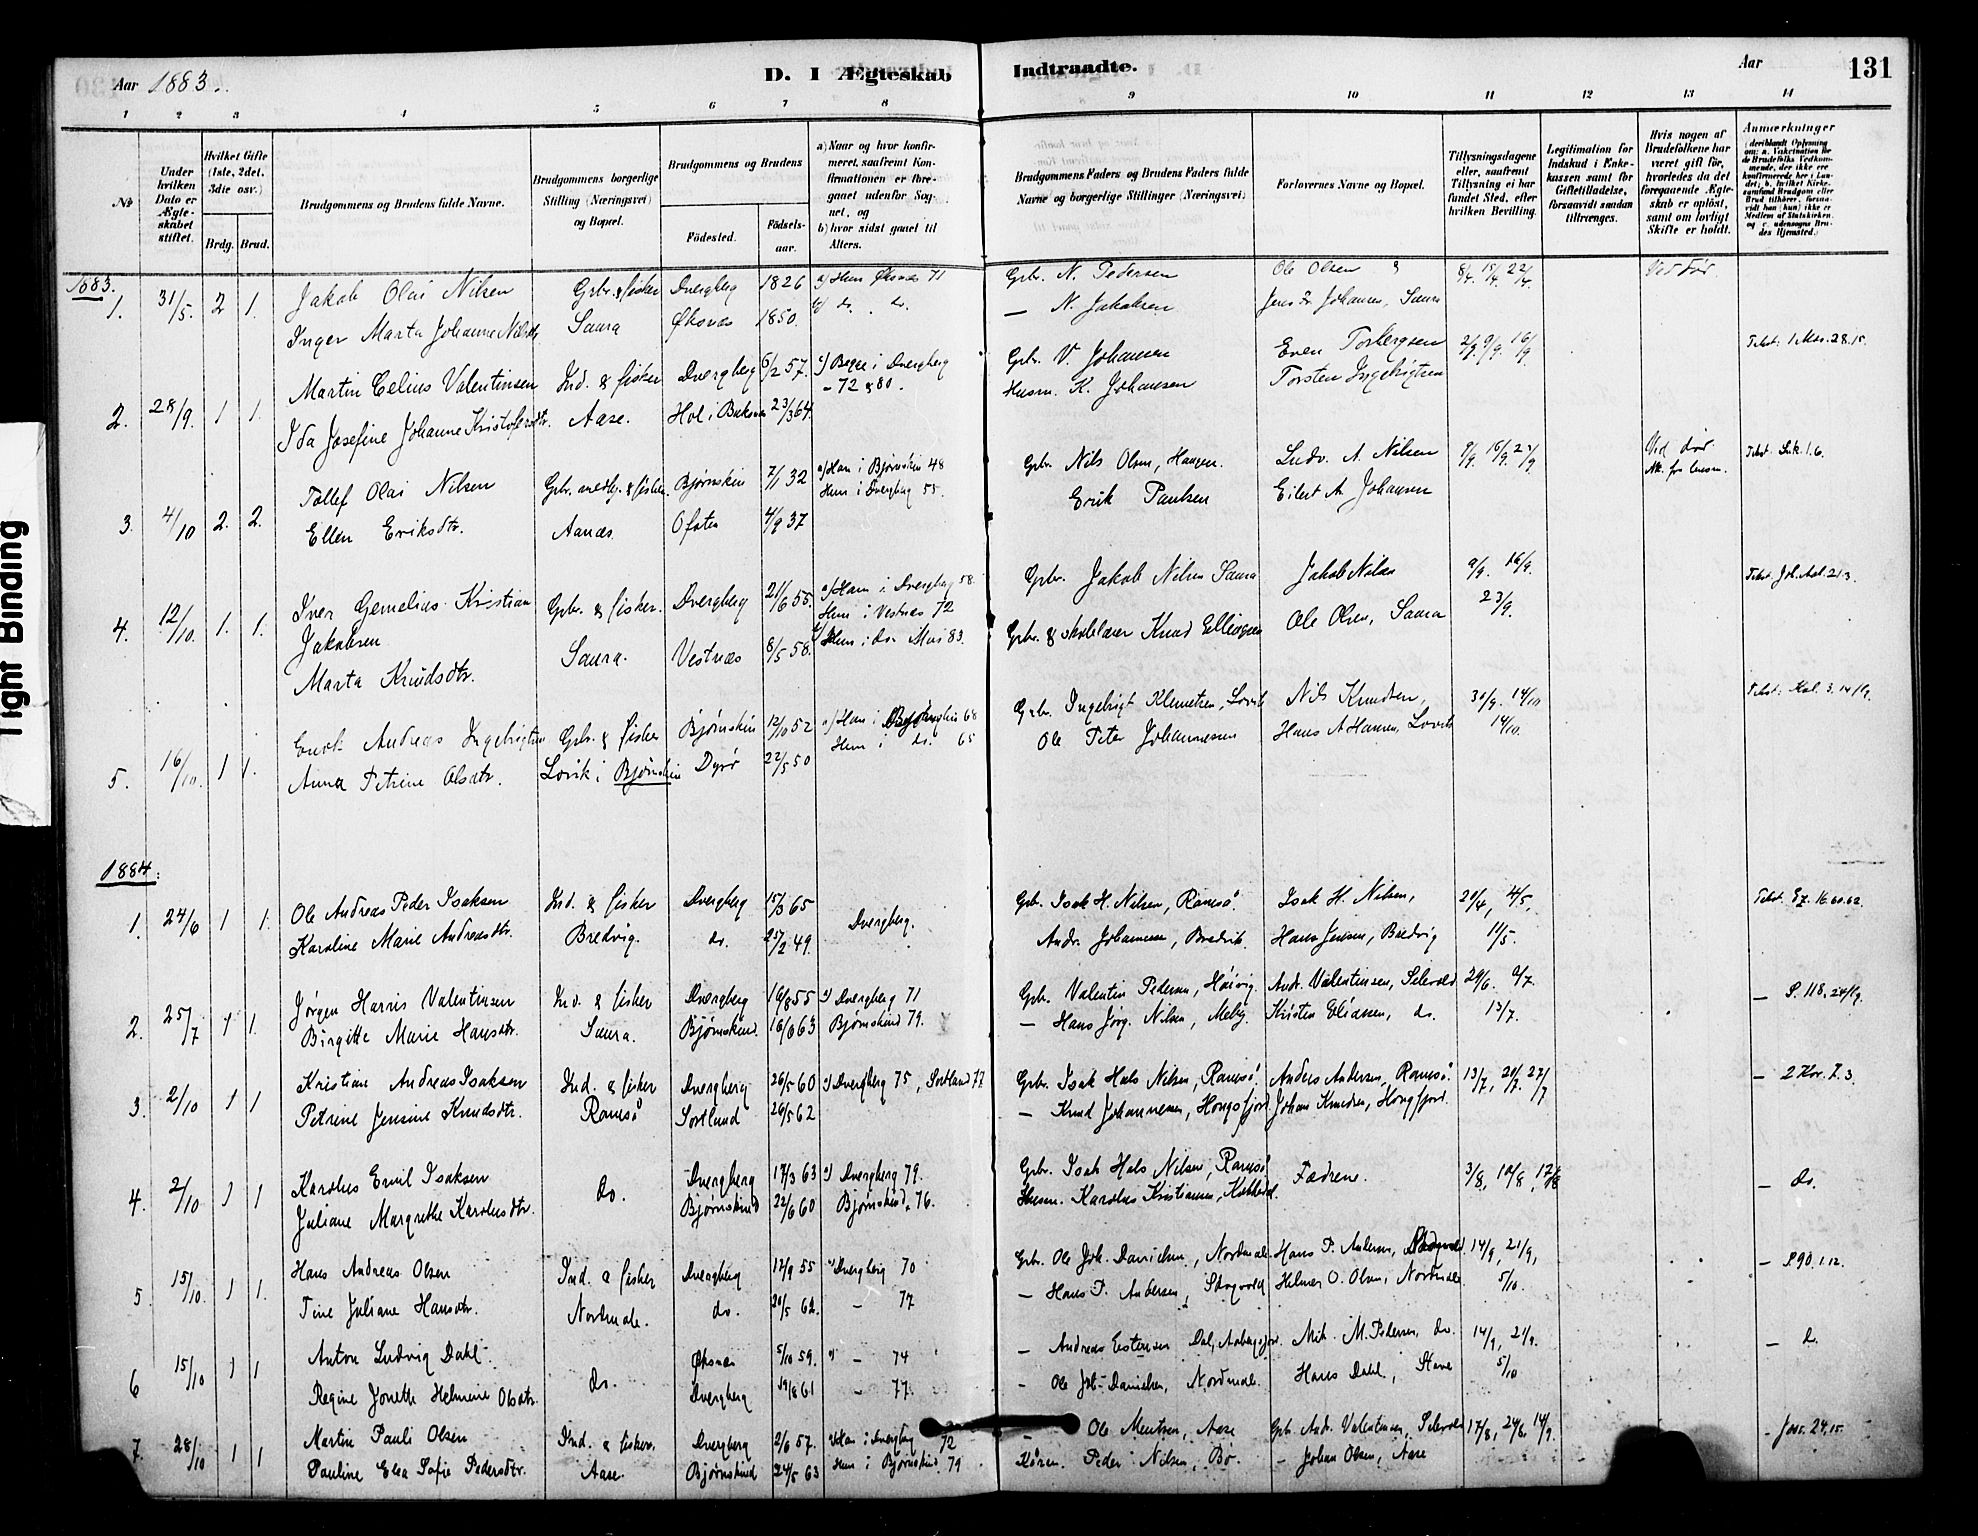 Aar 1883. D. I Ægteskab Indtraadte. Aar 131
1 2 3 4 5 6 7 8 9 10 11 12 13 14
No
Under hvilken Dato er Ægteskabet stiftet.
Hvilket Gifte (1ste, 2det, 3die osv.)
Brdg. Brud.
Brudgommens og Brudens fulde Navne.
Brudgommens borgerlige Stilling (Næringsvei) og Bopæl.
Brudgommens og Brudens
Födested. Födselsaar.
a) Naar og hvor konfirmeret, saafremt Konfirmationen er foregaaet udenfor Sognet, og
b) hvor sidst gaaet til Alters.
Brudgommens Faders og Brudens Faders fulde Navne og borgerlige Stillinger (Næringsvei)
Forlovernes Navne og Bopæl.
Tillysningsdagene eller, saafremt Tillysning ei har fundet Sted, efter hvilken Bevilling.
Legitimation for Indskud i Enkekassen samt for Giftetilladelse, forsaavidt saadan tiltrænges.
Hvis nogen af Brudefolkene har været gift för, hvorledes da det foregaaende Ægteskab er oplöst, samt om lovligt Skifte er holdt.
Anmærkninger
1883.
1. 31/5. 2 1. Jakob Olai Nilsen Grbr. & fisker Dverberg 1826 71 Gbr. N. Pedersen Ole Olsen & 8/4. 15/4. 22/4. Ved död.
Inger Marta Johanne Nilsdtr. Saura Øksnæs 1850. do. do. — N. Jakobsen Johansen, Saura
2. 28/9. 1 1. Martin Celius Valentinsen Ind. & fisker Dverberg 6/2 57. Begge i Dverberg Gbr. V. Johansen Even Torbergsen 2/9. 9/9. 16/9
Ida Josefine Johanne Kristofersdtr. Aase. Hol i Buksnæs 23/3 64. – 72 & 80. Husm. K. Johansen Torsten Ingebrigtsen
3. 4/10 2. 2. Tollef Olai Nilsen Bjørnskin 7/1 32 a) Ham i Bjørnskin 48 Gbr. Nils Olsen, Haugen. Ludv. A. Nilsen 9/9. 16/9. 23/9 Ved död Text. Luk. 1.6.
Ellen Eriksdtr. Aanæs Ofoten 4/9 37 Hun i Dverberg 55. Erik Paulsen Eilert A. Johansen
4. 12/10. 1. 1. Iver Gemelias Kristian Gbr. & fisker. Dverberg 21/6 55. a) Ham i Dverberg 58. Gbr. Jakob Nilsen Saura Jakob Nilsen 9/9. 16/9.
Jakobsen Hun i Vestnæs 72 23/9.
Marta Knudsdtr. Saura. Vestnæs 8/5 58. Hun i do. Mai 83. Gbr. & skolelærer Knud Ellingsen Ole Olsen, Saura
5. 16/10. 1 1. Andreas Ingebrigtsen Gbr. & fisker Bjørnskin 12/10 52 a) Ham i 68 Gbr. Ingebrigt Klemetsen, Lovik Nils Knudsen, 30/9. 14/10
Anna Petrine Olsdtr. Lovik i Bjørnskin Dyrø 22/5 50 Hun i do. 65 Ole Peter Johannesen Hans A Hansen, Lovik 14/10.
1884.
1. 24/6 1 1. Ole Andreas Peder Isaksen Ind. & fisker Dverberg 15/3 65 Dverberg. Gbr. Isak H. Nilsen, Ramsö. Isak H. Nilsen, 20/4, 4/5,
Karoline Marie Andreasdtr. Bredvig. do. 25/2 49. Andr. Johannesen, Bredvik. Hans Jensen, Bredvig 11/5.
2. 25/7 1 1. Jørgen Harris Valentinsen Ind. & fisker Dverberg 19/8 55 a) Dverberg 71 Gbr. Valentin Pedersen, Höivig. Andr. Valentinsen, Selvold 29/6. 6/7.
Birgitte Marie Hansdtr. Saura. Bjørnskind. 16/6 63 Bjørnskind 79. — Hans Jörg. Nilsen, Melby. Kristen Eliassen, do. 13/7.
3. 2/10 1 1 Kristian Andreas Isaksen Ind. & fisker Dverberg 26/5 60 a) Dverberg 75, Sortland 77 Gbr. Isak Hals Nilsen, Ramsö. Anders Andersen, Ramsö. 13/7, 20/7. 27/7 — 2 Kor. 7. 3.
Petrine Jensine Knudsdtr. Ramsö Sortland 26/5 62 — Knud Johannesen, Hongsfjord Johan Knudsen, Hongsfjord.
4. 2/10 1 1 Karolus Emil Isaksen do. Dverberg 17/3 63 a) Dverberg 79. Gbr. Isak Hals Nilsen, Ramsö Fædrene. 3/8, 10/8, 17/8 — do.
Juliane Margrethe Karolusdtr. Bjørnskind 22/6 60 Bjørnskind. 76. Husm. Karolus Kristiansen,
5 15/10. 1 1. Hans Andreas Olsen Ind. & fisker Dverberg 12/9 55 Dverberg 70 Gbr. Ole Joh. Danielsen, Nordmele. Hans P. Andersen, 14/9, 21/9, — S. 90. 1.12.
Tine Juliane Hansdtr. Nordmele. do. 20/5 62. – 77 — Hans P. Andersen, Skogvold Helmer O. Olsen, Nordmele 5/10.
6 15/10 1 1 Anton Ludvig Dahl do. Øksnæs 5/10 59. – 74 — Andreas Estensen Dal, Mik. M. Pedersen, do. 14/9, 21/9. — do.
Regine Jonette Helmine Olsdtr. Dverberg 19/8 61 – 77 — Ole Joh. Danielsen, Nordmele. Hans Dahl, Stave 5/10
7. 28/10 1 1 Martin Pauli Olsen Ind. & fisker. Dverberg 2/6 57. Ham i Dverberg 72 Ole Mentsen, Aase Gbr. Andr. Valentinsen, Selvold 17/8, 24/8. 14/9. – Jos. 24.15.
Pauline Elea Sofie Pedersdtr. Aase. Bjørnskind 24/5 63 Hun i Bjørnskind 79 Peder Nilsen, Bö. – Johan Olsen, Aase
Tight Binding